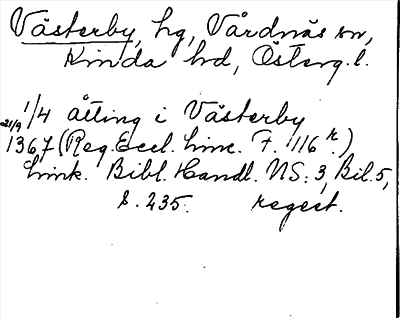 Västerby, hg, Vårdnäs sn,
Kinda hd, Österg.l.
1/4 åtting i Västerby
21/9 1367 (Reg. Eccl. Linc. F. 116 r.)
Link. Bibl. Handl. NS: 3, Bil. 5,
s. 235. regest.